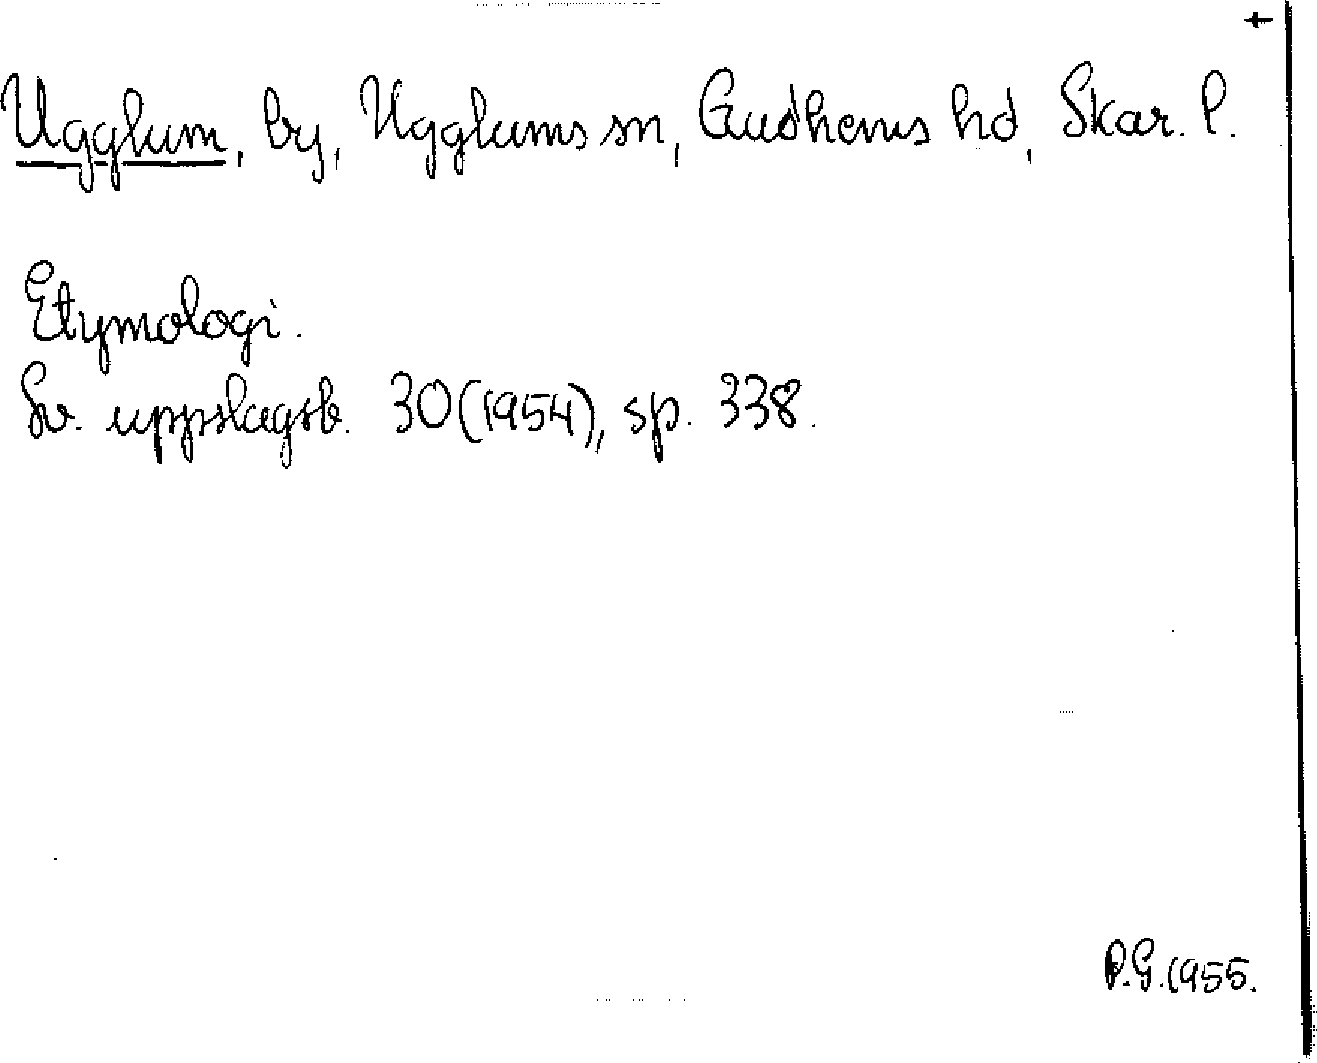 +
Ugglum, by, Ugglums sn, Gudhems hd, Skar. l.
Etymologi.
Sv. uppslagsb. 30(1954), sp. 338.
P.G.1955.